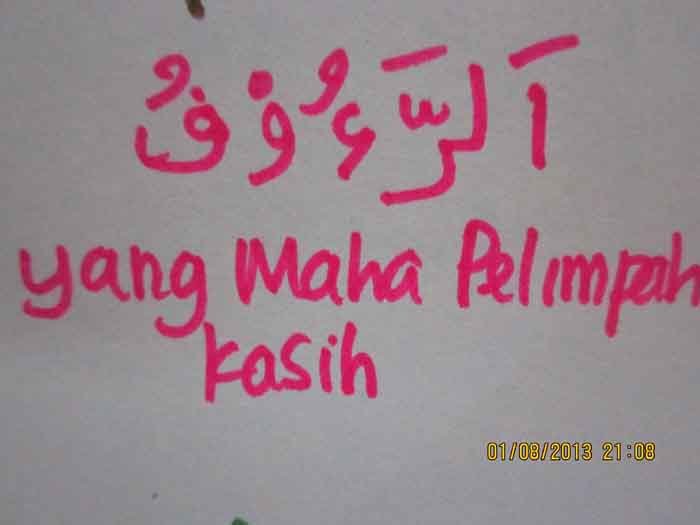 اَلرَّءُوْفُ
yang Maha Pelimpah
kasih
01/08/2013 21:08